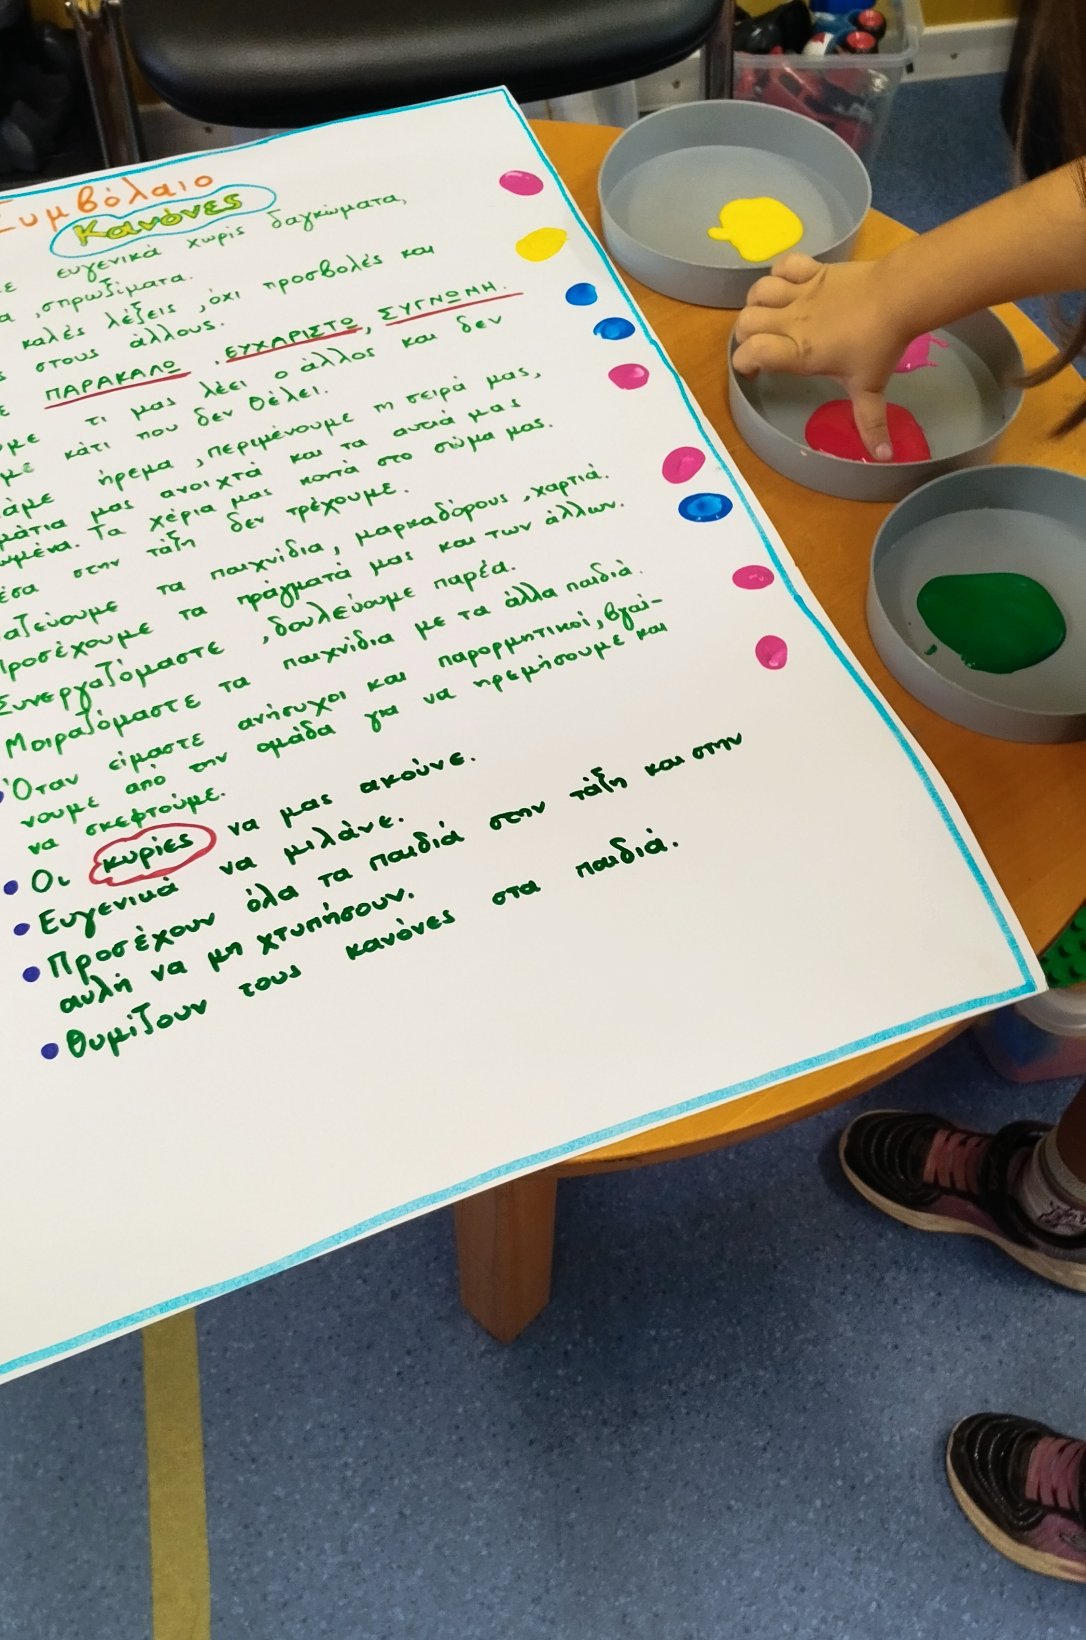 Συμβόλαιο
Κανόνες
ευγενικά χωρίς δαγκώματα,
,σπρωξίματα.
καλές λέξεις ,όχι προσβολές και
στους άλλους.
ΠΑΡΑΚΑΛΩ , ΕΥΧΑΡΙΣΤΩ, ΣΥΓΝΩΜΗ.
τι μας λέει ο άλλος και δεν
κάτι που δεν θέλει.
ήρεμα ,περιμένουμε τη σειρά μας,
μάτια μας ανοιχτά και τα αυτιά μας
Τα χέρια μας κοντά στο σώμα μας.
στην τάξη δεν τρέχουμε.
τα παιχνίδια, μαρκαδόρους ,χαρτιά.
Προσέχουμε τα πράγματά μας και των άλλων.
Συνεργαζόμαστε ,δουλεύουμε παρέα.
Μοιραζόμαστε τα παιχνίδια με τα άλλα παιδιά.
Όταν είμαστε ανήσυχοι και παρορμητικοί, βγαί-
νουμε από την ομάδα για να ηρεμήσουμε και
να σκεφτούμε.
• Οι κυρίες να μας ακούνε.
• Ευγενικά να μιλάνε.
• Προσέχουν όλα τα παιδιά στην τάξη και στην
αυλή να μη χτυπήσουν.
• Θυμίζουν τους κανόνες στα παιδιά.